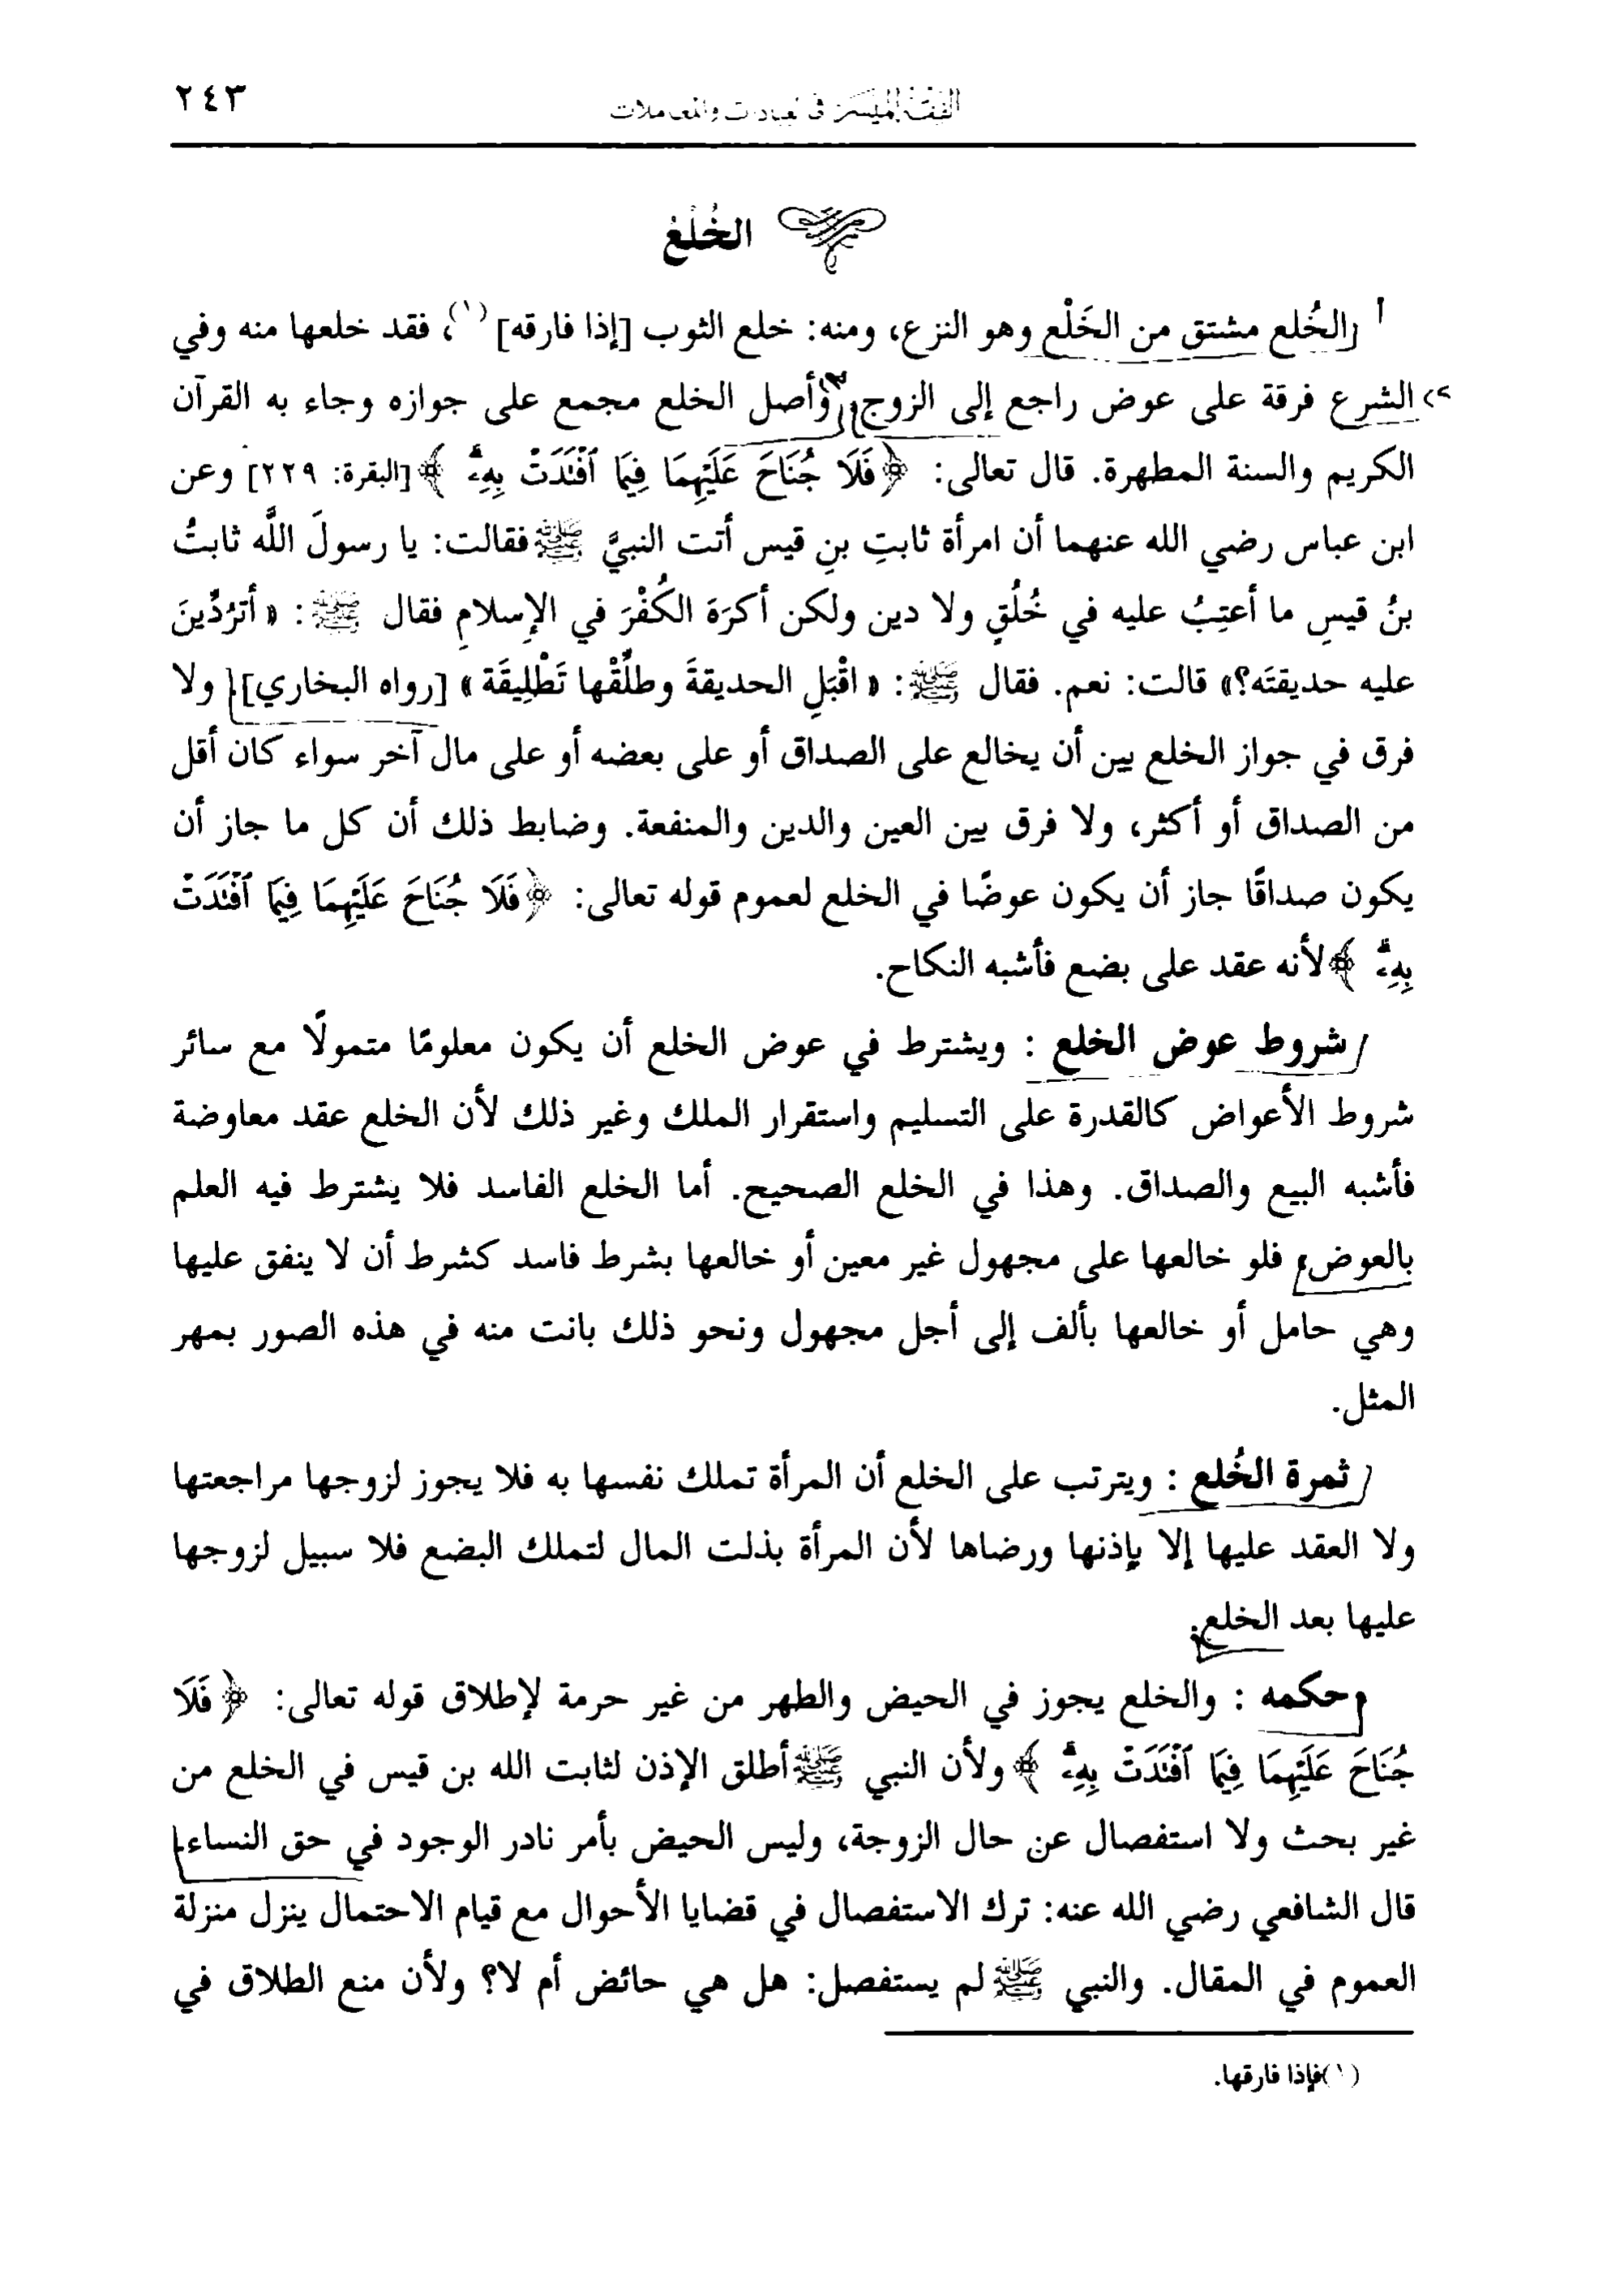 الفقه الميسر في العبادات والمعاملات ٢٤٣
الخُلْعُ
الخُلع مشتق من الخَلْع وهو النزع، ومنه: خلع الثوب [إذا فارقه] (١)، فقد خلعها منه وفي
الشرع فرقة على عوض راجع إلى الزوج، وأصل الخلع مجمع على جوازه وجاء به القرآن
الكريم والسنة المطهرة. قال تعالى: ﴿ فَلَا جُنَاحَ عَلَيْهِمَا فِيمَا ٱفْتَدَتْ بِهِۦۗ ﴾ [البقرة: ٢٢٩] وعن
ابن عباس رضي الله عنهما أن امرأة ثابتِ بنِ قيس أتت النبيَّ ﷺ فقالت: يا رسولَ اللَّه ثابتُ
بنُ قيسِ ما أعتِبُ عليه في خُلُقٍ ولا دين ولكن أكرَهَ الكُفْرَ في الإسلامِ فقال ﷺ: « أترُدِّينَ
عليه حديقتَه؟» قالت: نعم. فقال ﷺ: « اقْبَلِ الحديقةَ وطلِّقْها تَطْلِيقَة » [رواه البخاري]. ولا
فرق في جواز الخلع بين أن يخالع على الصداق أو على بعضه أو على مال آخر سواء كان أقل
من الصداق أو أكثر، ولا فرق بين العين والدين والمنفعة. وضابط ذلك أن كل ما جاز أن
يكون صداقًا جاز أن يكون عوضًا في الخلع لعموم قوله تعالى: ﴿ فَلَا جُنَاحَ عَلَيْهِمَا فِيمَا ٱفْتَدَتْ
بِهِۦۗ ﴾ لأنه عقد على بضع فأشبه النكاح.
شروط عوض الخلع : ويشترط في عوض الخلع أن يكون معلومًا متمولًا مع سائر
شروط الأعواض كالقدرة على التسليم واستقرار الملك وغير ذلك لأن الخلع عقد معاوضة
فأشبه البيع والصداق. وهذا في الخلع الصحيح. أما الخلع الفاسد فلا يشترط فيه العلم
بالعوض، فلو خالعها على مجهول غير معين أو خالعها بشرط فاسد كشرط أن لا ينفق عليها
وهي حامل أو خالعها بألف إلى أجل مجهول ونحو ذلك بانت منه في هذه الصور بمهر
المثل.
ثمرة الخُلع : ويترتب على الخلع أن المرأة تملك نفسها به فلا يجوز لزوجها مراجعتها
ولا العقد عليها إلا بإذنها ورضاها لأن المرأة بذلت المال لتملك البضع فلا سبيل لزوجها
عليها بعد الخلع.
وحكمه : والخلع يجوز في الحيض والطهر من غير حرمة لإطلاق قوله تعالى: ﴿ فَلَا
جُنَاحَ عَلَيْهِمَا فِيمَا ٱفْتَدَتْ بِهِۦۗ ﴾ ولأن النبي ﷺ أطلق الإذن لثابت الله بن قيس في الخلع من
غير بحث ولا استفصال عن حال الزوجة، وليس الحيض بأمر نادر الوجود في حق النساء.
قال الشافعي رضي الله عنه: ترك الاستفصال في قضايا الأحوال مع قيام الاحتمال ينزل منزلة
العموم في المقال. والنبي ﷺ لم يستفصل: هل هي حائض أم لا؟ ولأن منع الطلاق في
(١) فإذا فارقها.